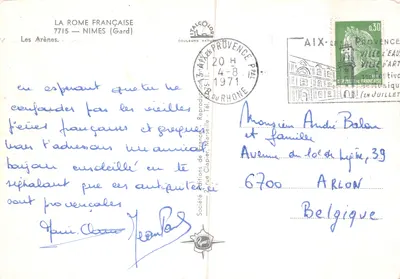 LA ROME FRANÇAISE
7715 — NIMES (Gard)
Les Arènes.
en espérant que tu ne
confondes pas les vieilles
pierres françaises et grecques
nous t'adressons un amical
bonjour ensoleillé en te
signalant que ces antiquités
sont provençales
Marie Jean Paul
13 AIX-EN-PROVENCE PPAL
20 H
4-8
1971
B. DU RHONE
AIX-en-Provence
VILLE d'EAU
VILLE d'ART
EN JUILLET
0,30
Monsieur André Balon
et famille
Avenue du 39
6700 ARLON
Belgique